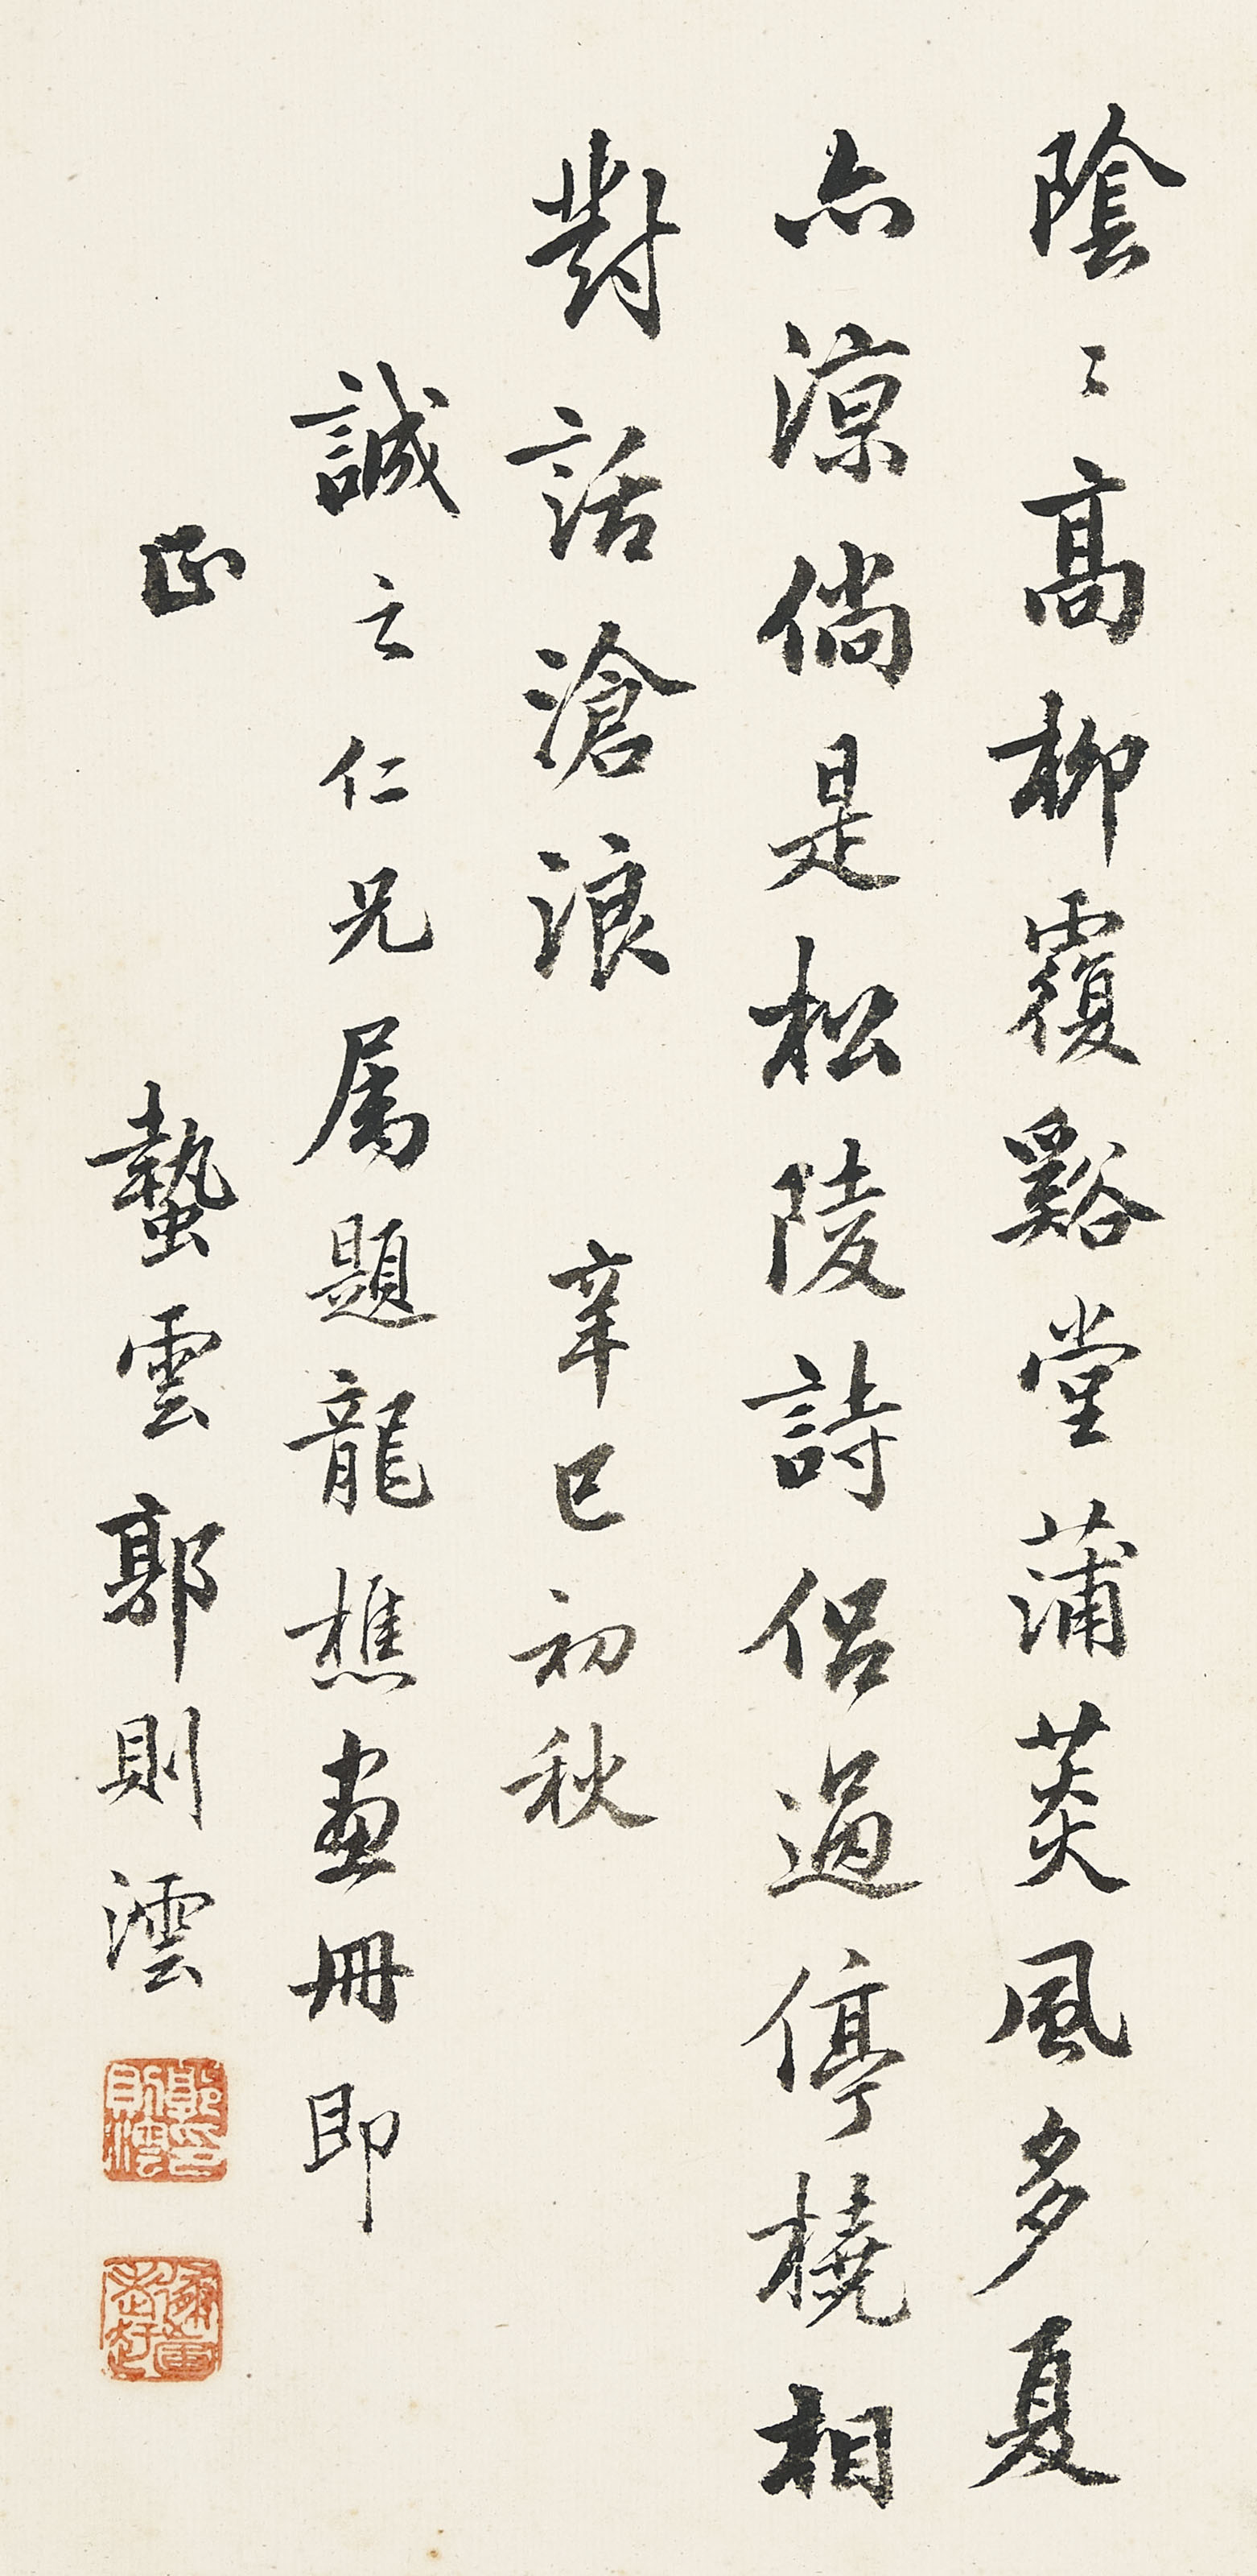 陰〻高柳覆谿堂蒲葵風多夏
亦涼倘是松陵詩侶過停橈相
對話滄浪 辛巳初秋
誠之仁兄属題龍樵畫冊即
正 蟄雲郭則澐
郭則澐印